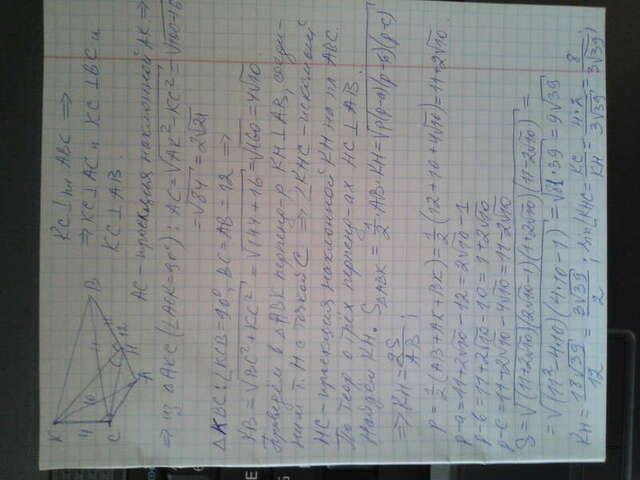 K
4
C
A
H
12
B
10
KC⊥пл ABC ⇒
⇒ KC⊥AC и KC⊥BC и
KC⊥AB.
AC - проекция наклонной AK ⇒
⇒ из △AKC (∠ACK=90°): AC=√AK²-KC² = √100-16
= √84 = 2√21
△KBC: ∠KCB=90°, BC=AB=12 ⇒
KB=√BC²+KC² = √144+16 = √160 = 4√10
Проведем в △ABK перпенд-р KH⊥AB, соеди-
ним т. H с точкой C ⇒ ∠KHC - искомый
HC - проекция наклонной KH на пл ABC.
По теор о трех перпенд-ах HC⊥AB.
Найдем KH. S△ABK = 1/2·AB·KH = √p(p-a)(p-b)(p-c)
⇒ KH = 2S/AB;
p = 1/2(AB+AK+BK) = 1/2(12+10+4√10) = 11+2√10
p-a = 11+2√10-12 = 2√10-1
p-b = 11+2√10-10 = 1+2√10
p-c = 11+2√10-4√10 = 11-2√10
S = √(11+2√10)(2√10-1)(1+2√10)(11-2√10) =
= √(11²-4·10)(4·10-1) = √81·39 = 9√39
KH = 18√39/12 = 3√39/2; sin∠KHC = KC/KH = 4·2/3√39 = 8/3√39